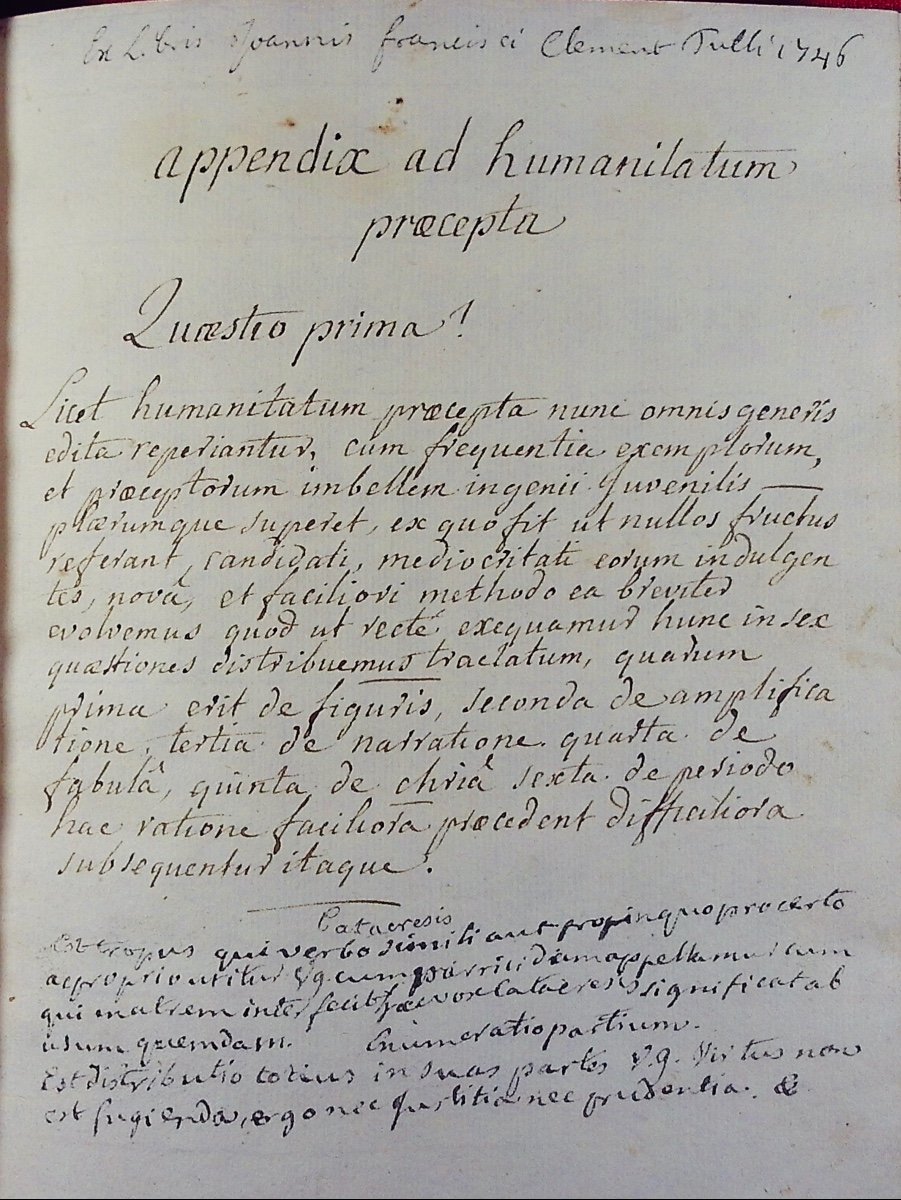 Ex Libris Joannis francisci Clement Tulli 1746
appendix ad humanitatum
præcepta
Quæstio prima!
Licet humanitatum præcepta nunc omnis generis
edita reperiantur, cum frequentia exemplorum,
et præceptorum imbellem ingenii Juvenilis
plærumque superet, ex quo fit ut nullos fructus
referant, candidati, mediocritati eorum indulgen
tes, novâ, et faciliori methodo ea breviter
evolvemus quod ut recté exequamur hunc in sex
quæstiones distribuemus tractatum, quarum
prima erit de figuris, seconda de amplifica
tione, tertia de narratione. quarta de
fabulâ, quinta de chriâ sexta de periodo
hac ratione faciliora præcedent difficiliora
subsequentur itaque.
Catacresis
Est tropus qui verbo simili aut propinquo pro certo
ac proprio utitur Vg cum parricidam appellamus eum
qui matrem inter fecit hæc vox catacresis significat ab
usum quemdam. Enumeratio partium.
Est distributio totius in suas partes V.g. Virtus non
est fugienda, ergo nec Justitia nec prudentia. &